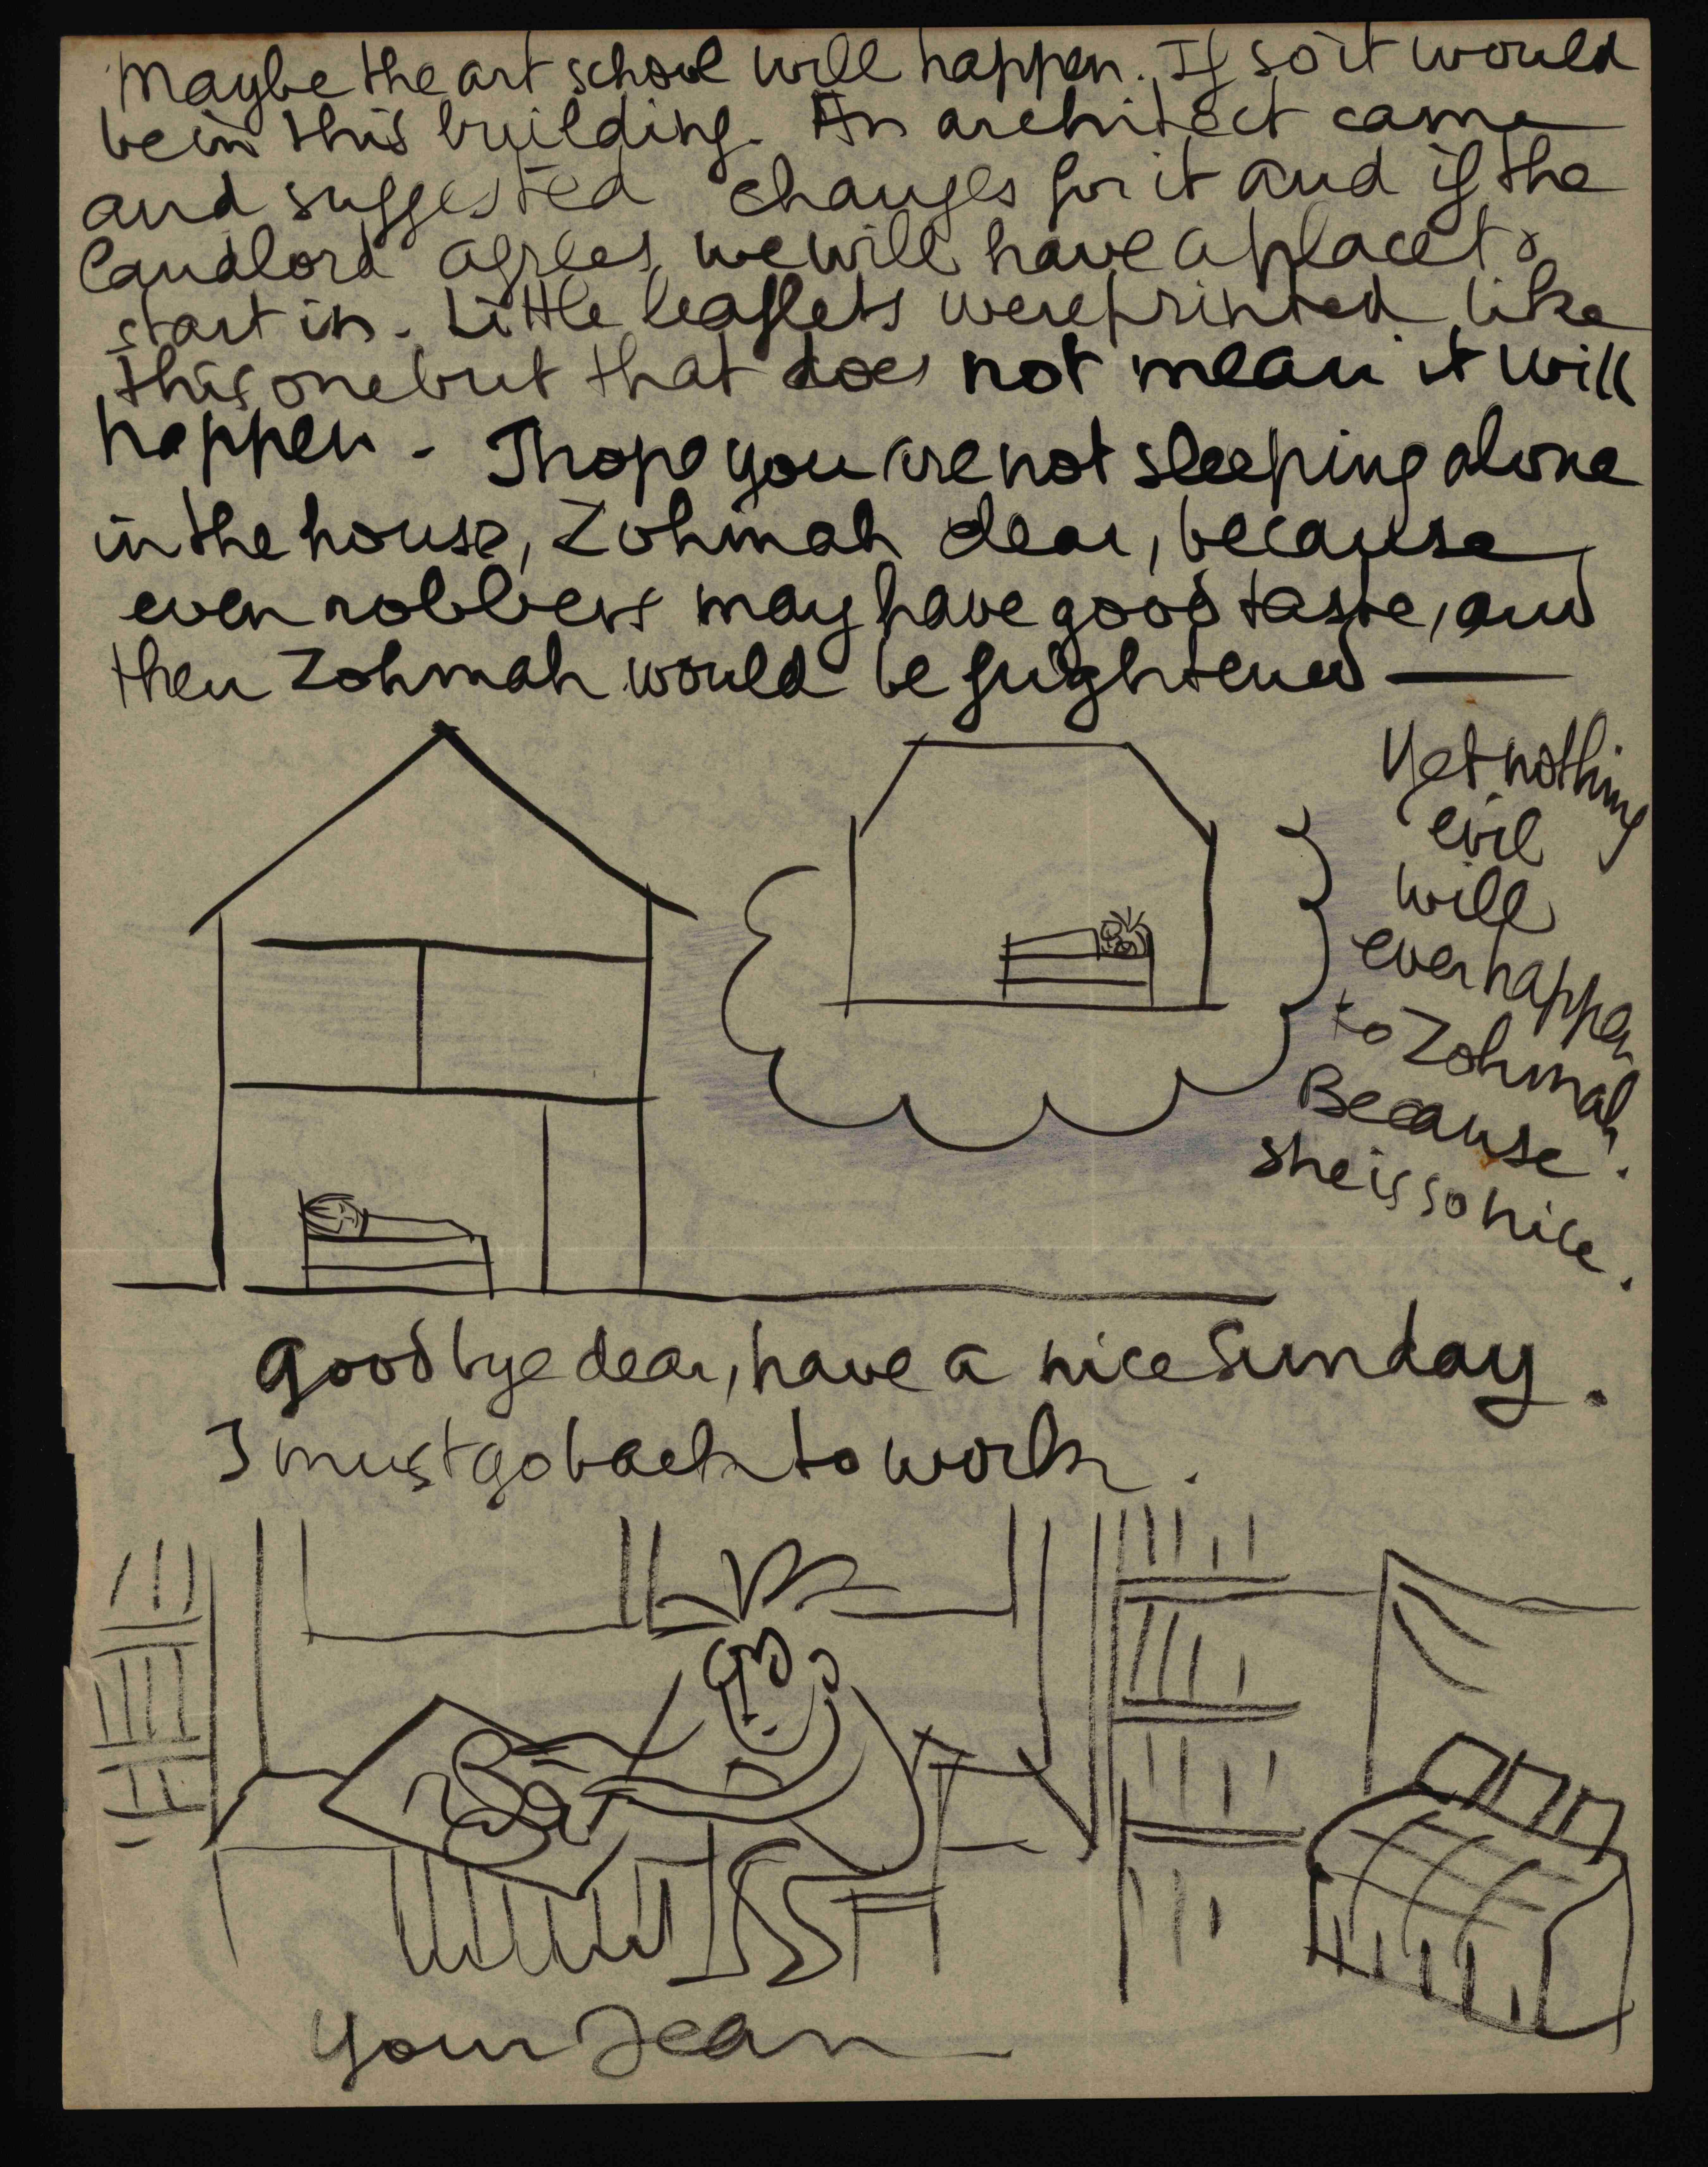 Maybe the art school will happen. If so it would
be in this building. An architect came
and suggested changes for it and if the
landlord agrees, we will have a place to
start in. Little leaflets were printed like
this one but that does not mean it will
happen - I hope you are not sleeping alone
in the house, Zohmah dear, because
even robbers may have good taste, and
then Zohmah would be frightened —
Yet nothing
evil
will
ever happen
to Zohmah.
Because
she is so nice.
Good bye dear, have a nice Sunday.
I must go back to work.
Your Jean